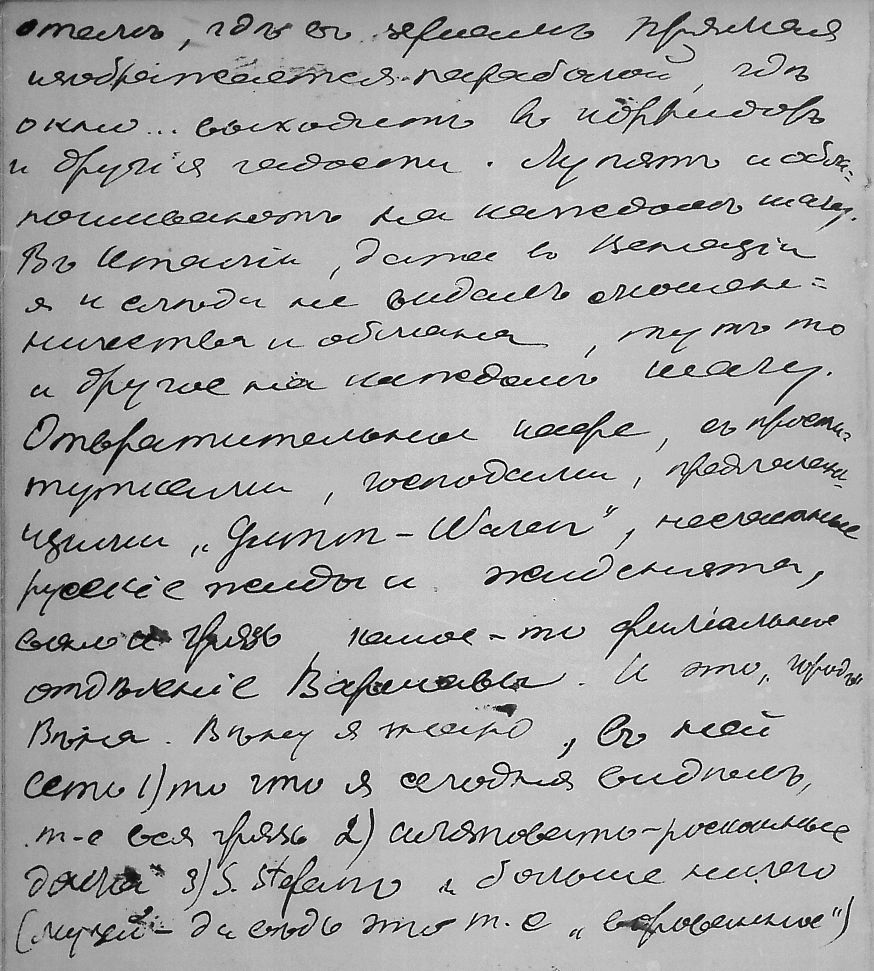 отель, гдѣ въ зеркалѣ прямая
изображается параболой, гдѣ
окно... выходитъ въ корридоръ
и другія гадости. Лупятъ и обли=
пошиваютъ на каждомъ шагу.
Въ Италіи, даже въ Венеціи
я и слѣда не видалъ мошен=
ничества и обмана, тутъ то
и другое на каждомъ шагу.
Отвратительные кафе, съ прости=
тутками, господами, предлагаю=
щими „Gummi-Waren“, несчастные
русскіе жиды и жиденята,
вонь и грязь, какое-то филіальное
отдѣленіе Варшавы. И это „городъ“
Вѣна. Вѣну я знаю, въ ней
есть 1) то что я сегодня видѣлъ,
т-е вся грязь 2) шляповато-роскошные
дома 3) S. Stefano и больше ничего
(музеи - да вѣдь это т-е „ворованное“)